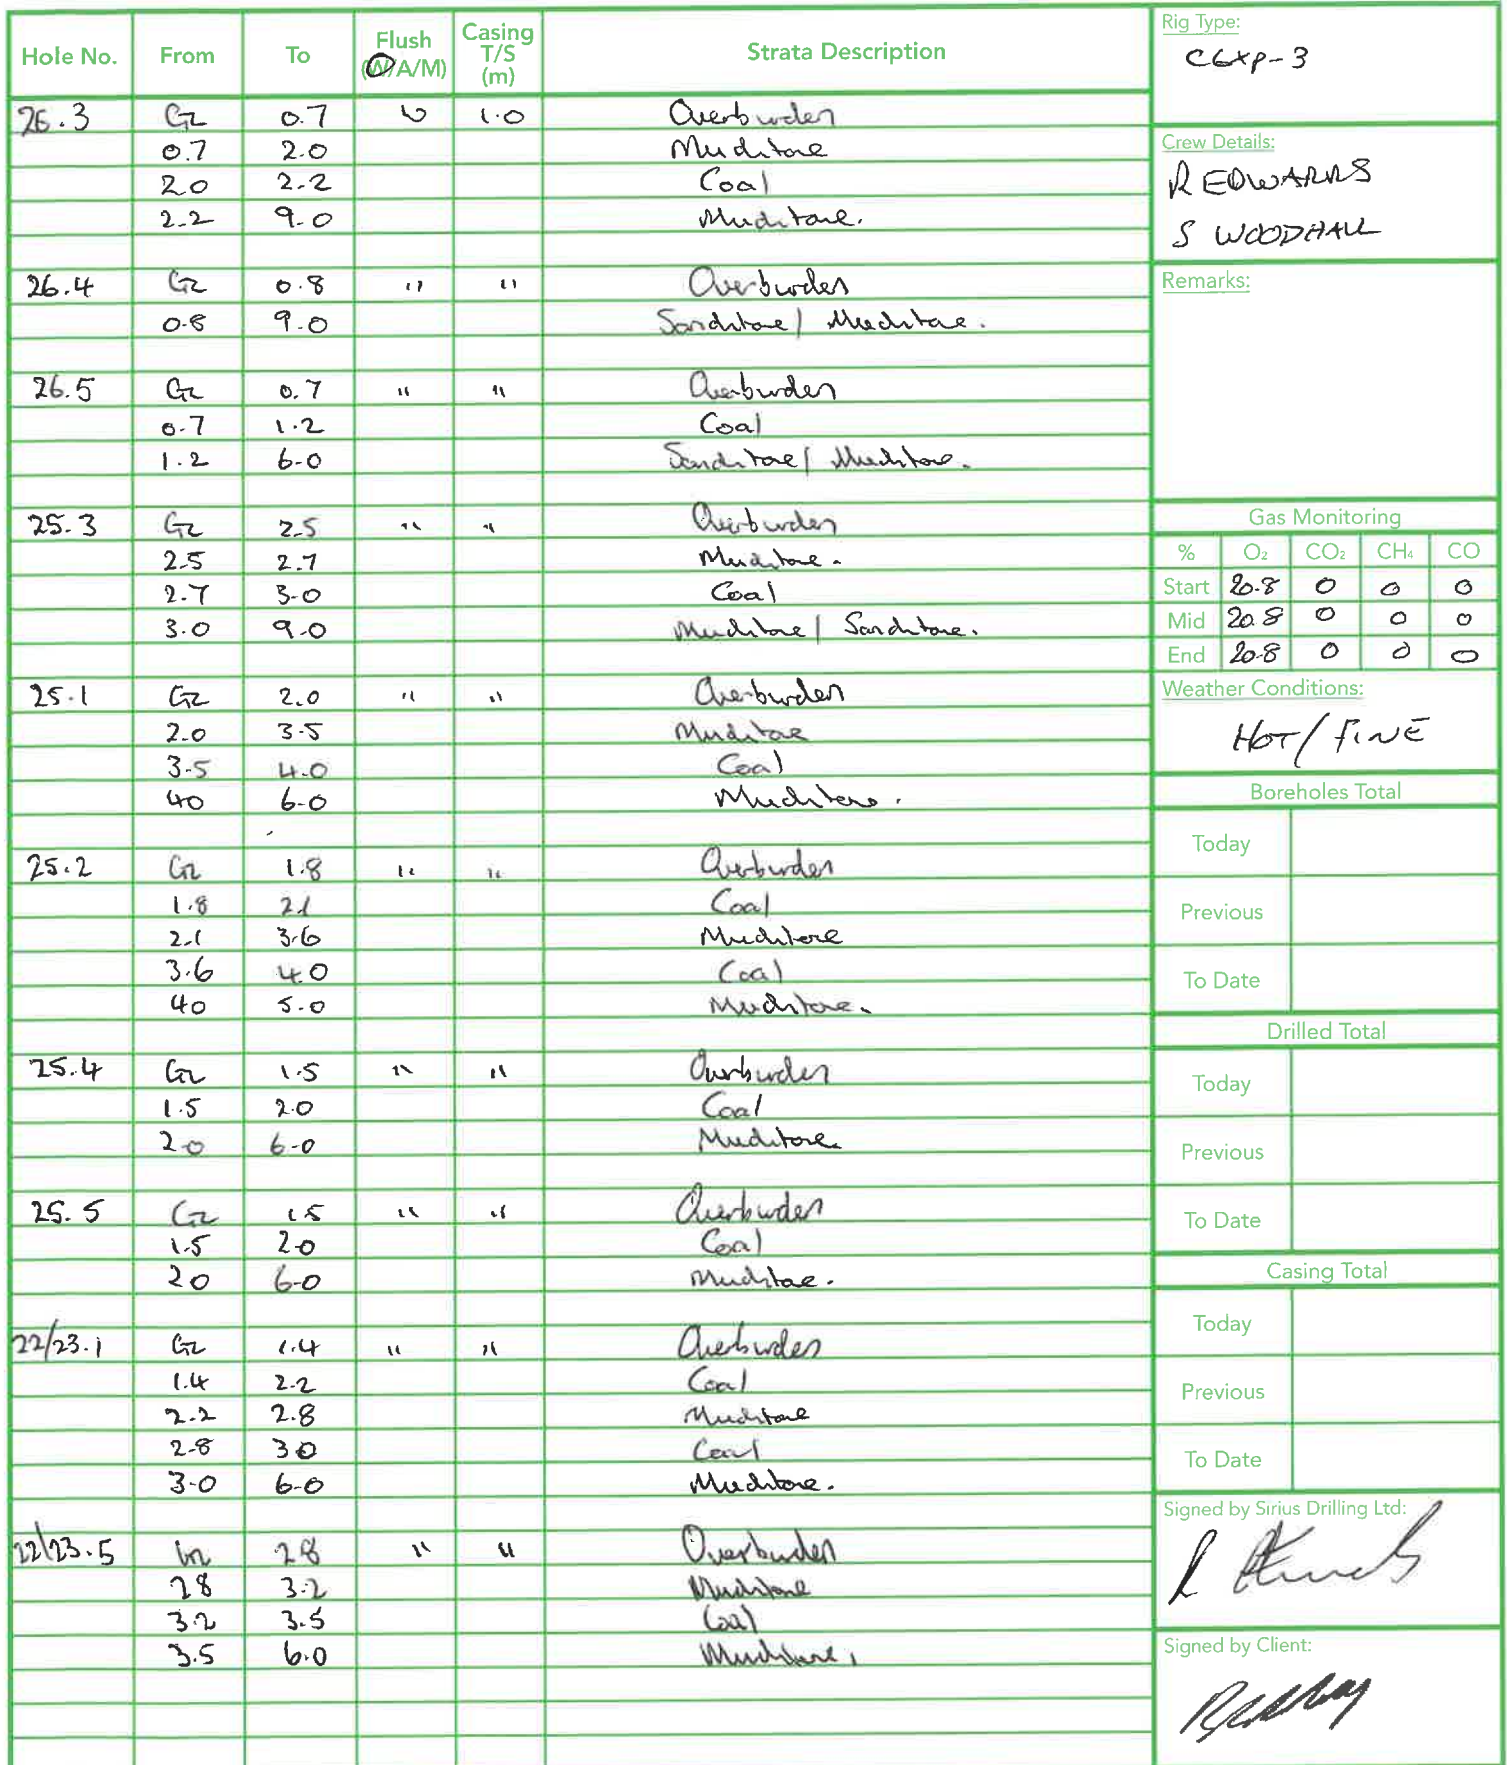 Hole No. From To Flush (W/A/M) Casing T/S (m) Strata Description
26.3 GL 0.7 W 1.0 Overburden
0.7 2.0 Mudstone
2.0 2.2 Coal
2.2 9.0 Mudstone.
26.4 GL 0.8 " " Overburden
0.8 9.0 Sandstone/ Mudstone.
26.5 GL 0.7 " " Overburden
0.7 1.2 Coal
1.2 6.0 Sandstone/ Mudstone.
25.3 GL 2.5 " " Overburden
2.5 2.7 Mudstone.
2.7 3.0 Coal
3.0 9.0 Mudstone/ Sandstone.
25.1 GL 2.0 " " Overburden
2.0 3.5 Mudstone
3.5 4.0 Coal
40 6.0 Mudstone.
25.2 GL 1.8 " " Overburden
1.8 2.1 Coal
2.1 3.6 Mudstone
3.6 4.0 Coal
40 5.0 Mudstone.
25.4 GL 1.5 " " Overburden
1.5 2.0 Coal
2.0 6.0 Mudstone.
25.5 GL 1.5 " " Overburden
1.5 2.0 Coal
20 6.0 Mudstone.
22/23.1 GL 1.4 " " Overburden
1.4 2.2 Coal
2.2 2.8 Mudstone
2.8 30 Coal
3.0 6.0 Mudstone.
22/23.5 GL 28 " " Overburden
28 3.2 Mudstone
3.2 3.5 Coal
3.5 6.0 Mudstone.
Rig Type:
C6XP-3
Crew Details:
R EDWARDS
S WOODHALL
Remarks:
Gas Monitoring
% O₂ CO₂ CH₄ CO
Start 20.8 0 0 0
Mid 20.8 0 0 0
End 20.8 0 0 0
Weather Conditions:
HOT/FINE
Boreholes Total
Today
Previous
To Date
Drilled Total
Today
Previous
To Date
Casing Total
Today
Previous
To Date
Signed by Sirius Drilling Ltd:
Signed by Client: